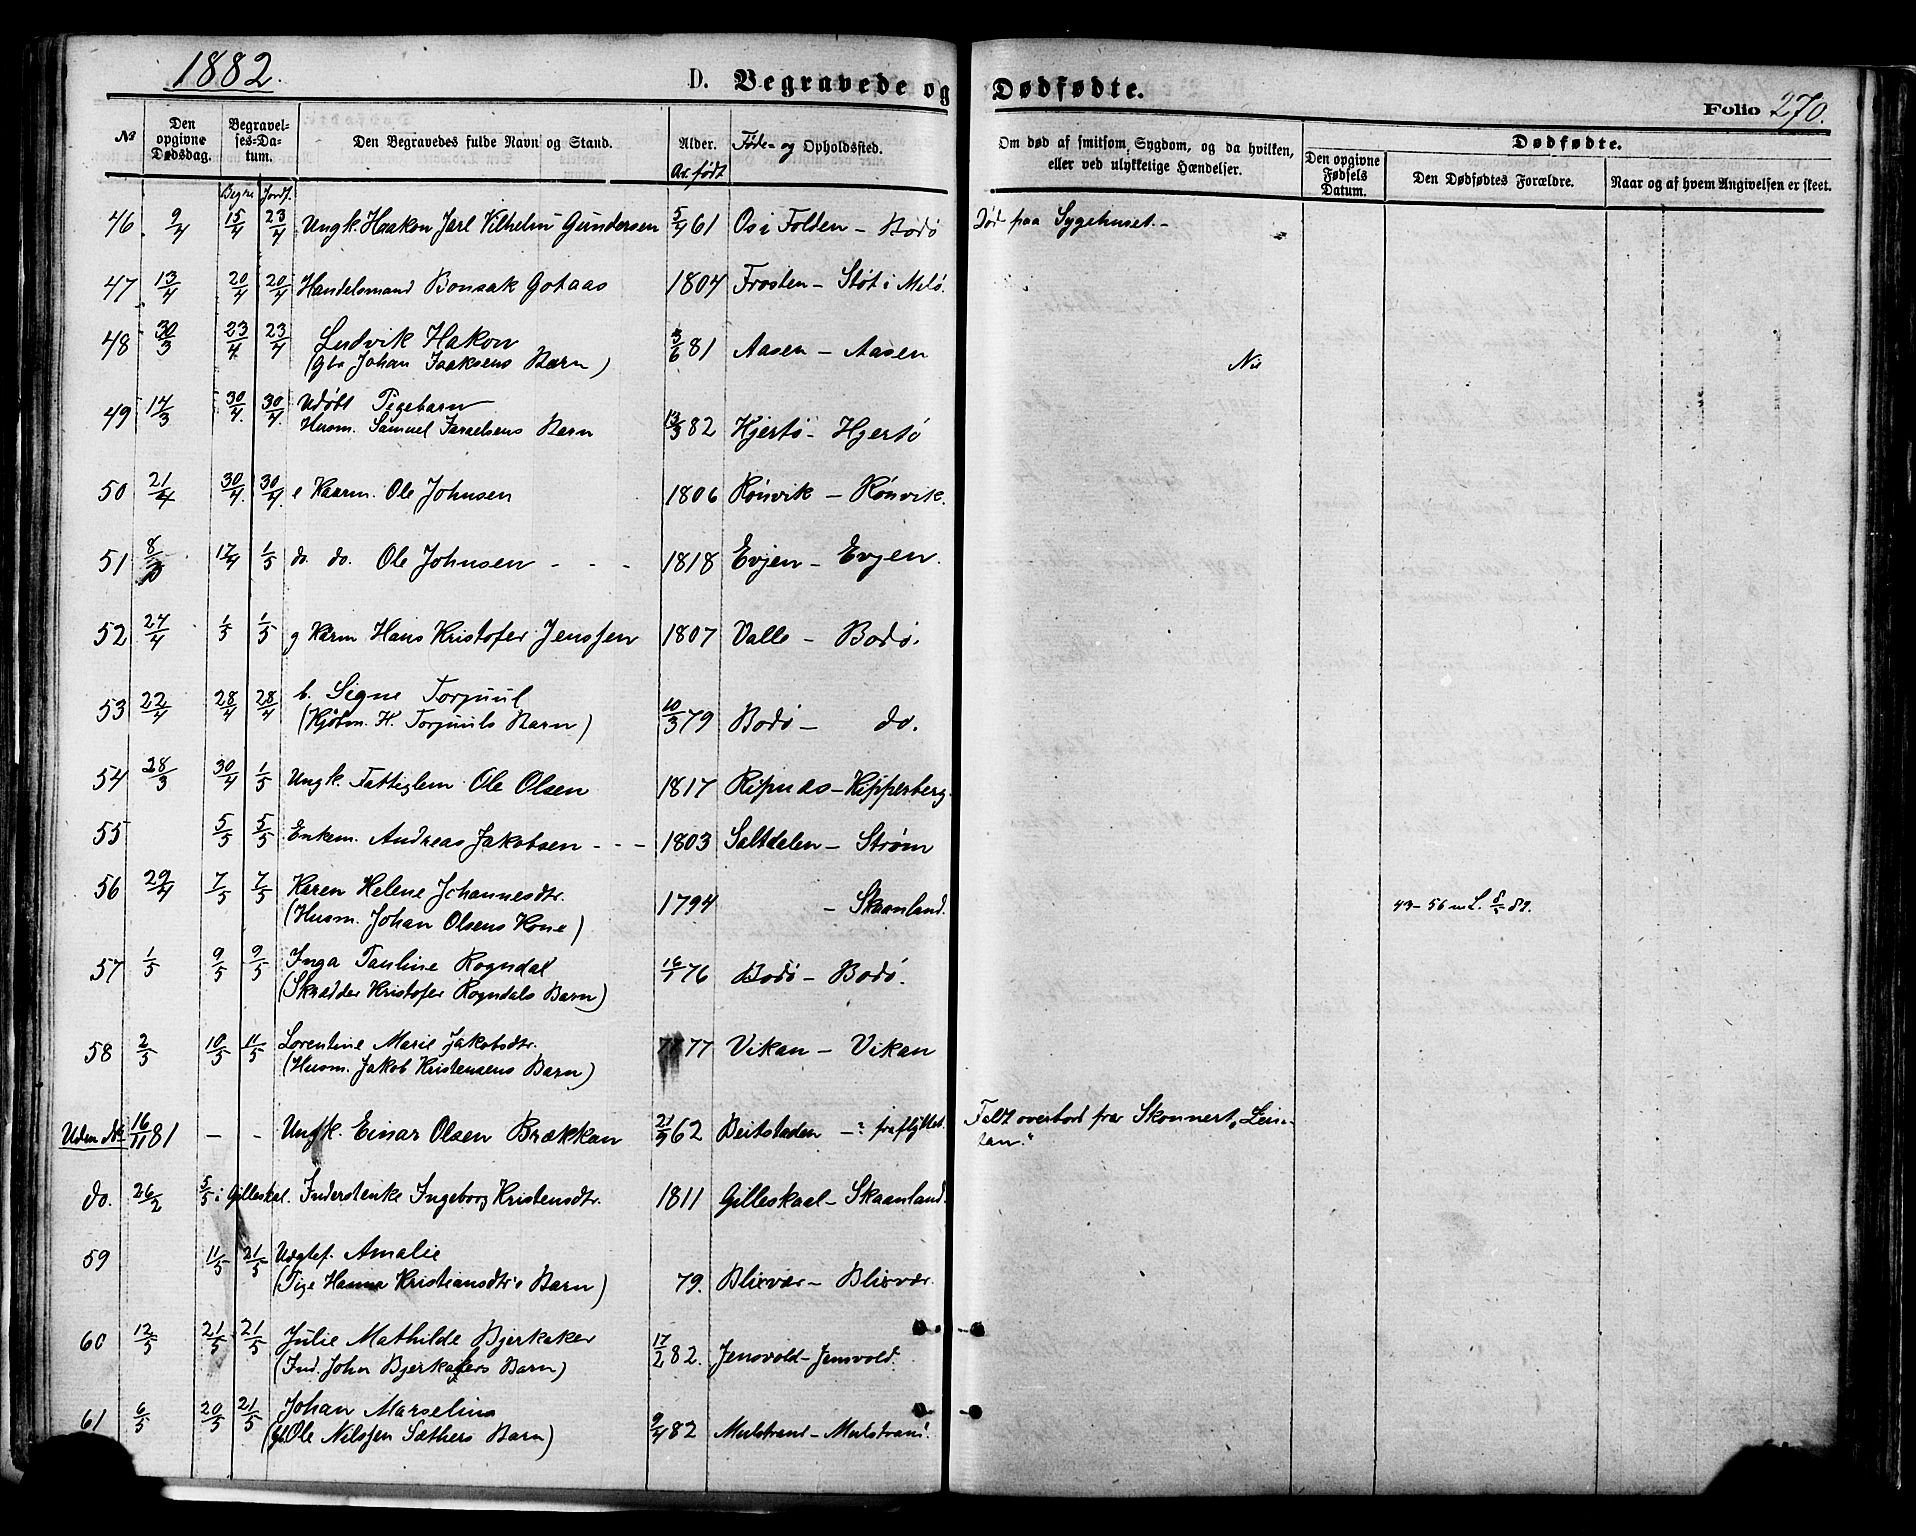 1882.
D. Begravede og Dødfødte.
Folio 270.
№ Den opgivne Dødsdag. Begravelses-Datum. Den Begravedes fulde Navn og Stand. Alder. Føde- og Opholdssted. Om død af smitsom Sygdom, og da hvilken, eller ved ulykkelige Hændelser. Dødfødte.
Den opgivne Fødsels Datum. Den Dødfødtes Forældre. Naar og af hvem Angivelsen er skeet.
Begr. Jordf. Aar født
46 9/4 15/4 23/4 Ungk. Haakon Jarl Vilhelm Gundersen 5/4 61 Os i Folden - Bodø Død paa Sygehuset. -
47 13/4 20/4 20/4 Handelsmand Bonsak Gotaas 1804 Frosten - Støt i Melø.
48 30/3 23/4. 23/4 Ludvik Hakon
(Gbr Johan Isaksens Barn) 3/6 81 Aasen - Aasen Nei
49 14/3 30/4. 30/4. Udøbt Pigebarn
Husm. Samuel Israelsens Barn 13/3 82 Hjertø - Hjertø
50 21/4 30/4. 30/4. e Kaarm. Ole Johnsen 1806 Rønvik - Rønvik.
51 8/ 17/4 1/5 do. do. Ole Johnsen - - - 1818 Evjen - Evjen.
52 27/4 1/5 1/5 g Karm Hans Kristofer Jenssen 1807 Valle - Bodø.
53 22/4 28/4 28/4 b. Signe Torjuul
(Kjøbm. H. Torjuuls Barn) 10/3 79 Bodø - do.
54 28/3 30/4 1/5 Ungk. Fattiglem Ole Olsen 1817 Ripnæs - Kipperberg.
55 5/5 5/5 Enkem. Andreas Jakobsen - - - 1803 Saltdalen - Strøm
56 29/4 7/5 7/5 Karen Helene Johannesdtr.
(Husm. Johan Olsens Kone) 1794 - Skaanland. 43-56 m L. 8/5 82.
57 1/5 9/5 9/5 Inga Pauline Rogndal
(Skrædder Kristofer Rogndals Barn) 16/1 76 Bodø - Bodø.
58 2/5 10/5 11/5 Lorentine Marie Jakobsdtr.
(Husm. Jakob Kristensens Barn) 77 Vikan - Vikan
Uden No 16/11 81 - - Ungk. Einar Olsen Brækkan 21/9 62 Beitstaden - ? fraflyttet. Faldt overbord fra Skonnert
do. 26/2 5/5 i Gilleskal. Inderstenke Ingeborg Kristensdtr. 1811 Gilleskaal - Skaanland.
59 11/5 21/5 Uægtef. Amalie
(Pige Hanna Kristiansdtr's Barn) 79. Blixvær - Blixvær.
60 12/5 21/5 21/5 Julie Mathilde Bjerkaker
(Ind. John Bjerkakers Barn) 17/2 82. Jensvold - Jensvold.
61 6/5 20/5 21/5 Johan Marselius
(gb. Ole Nilssen Sæthers Barn) 9/4 82 Mulstrand - Mulstrand.